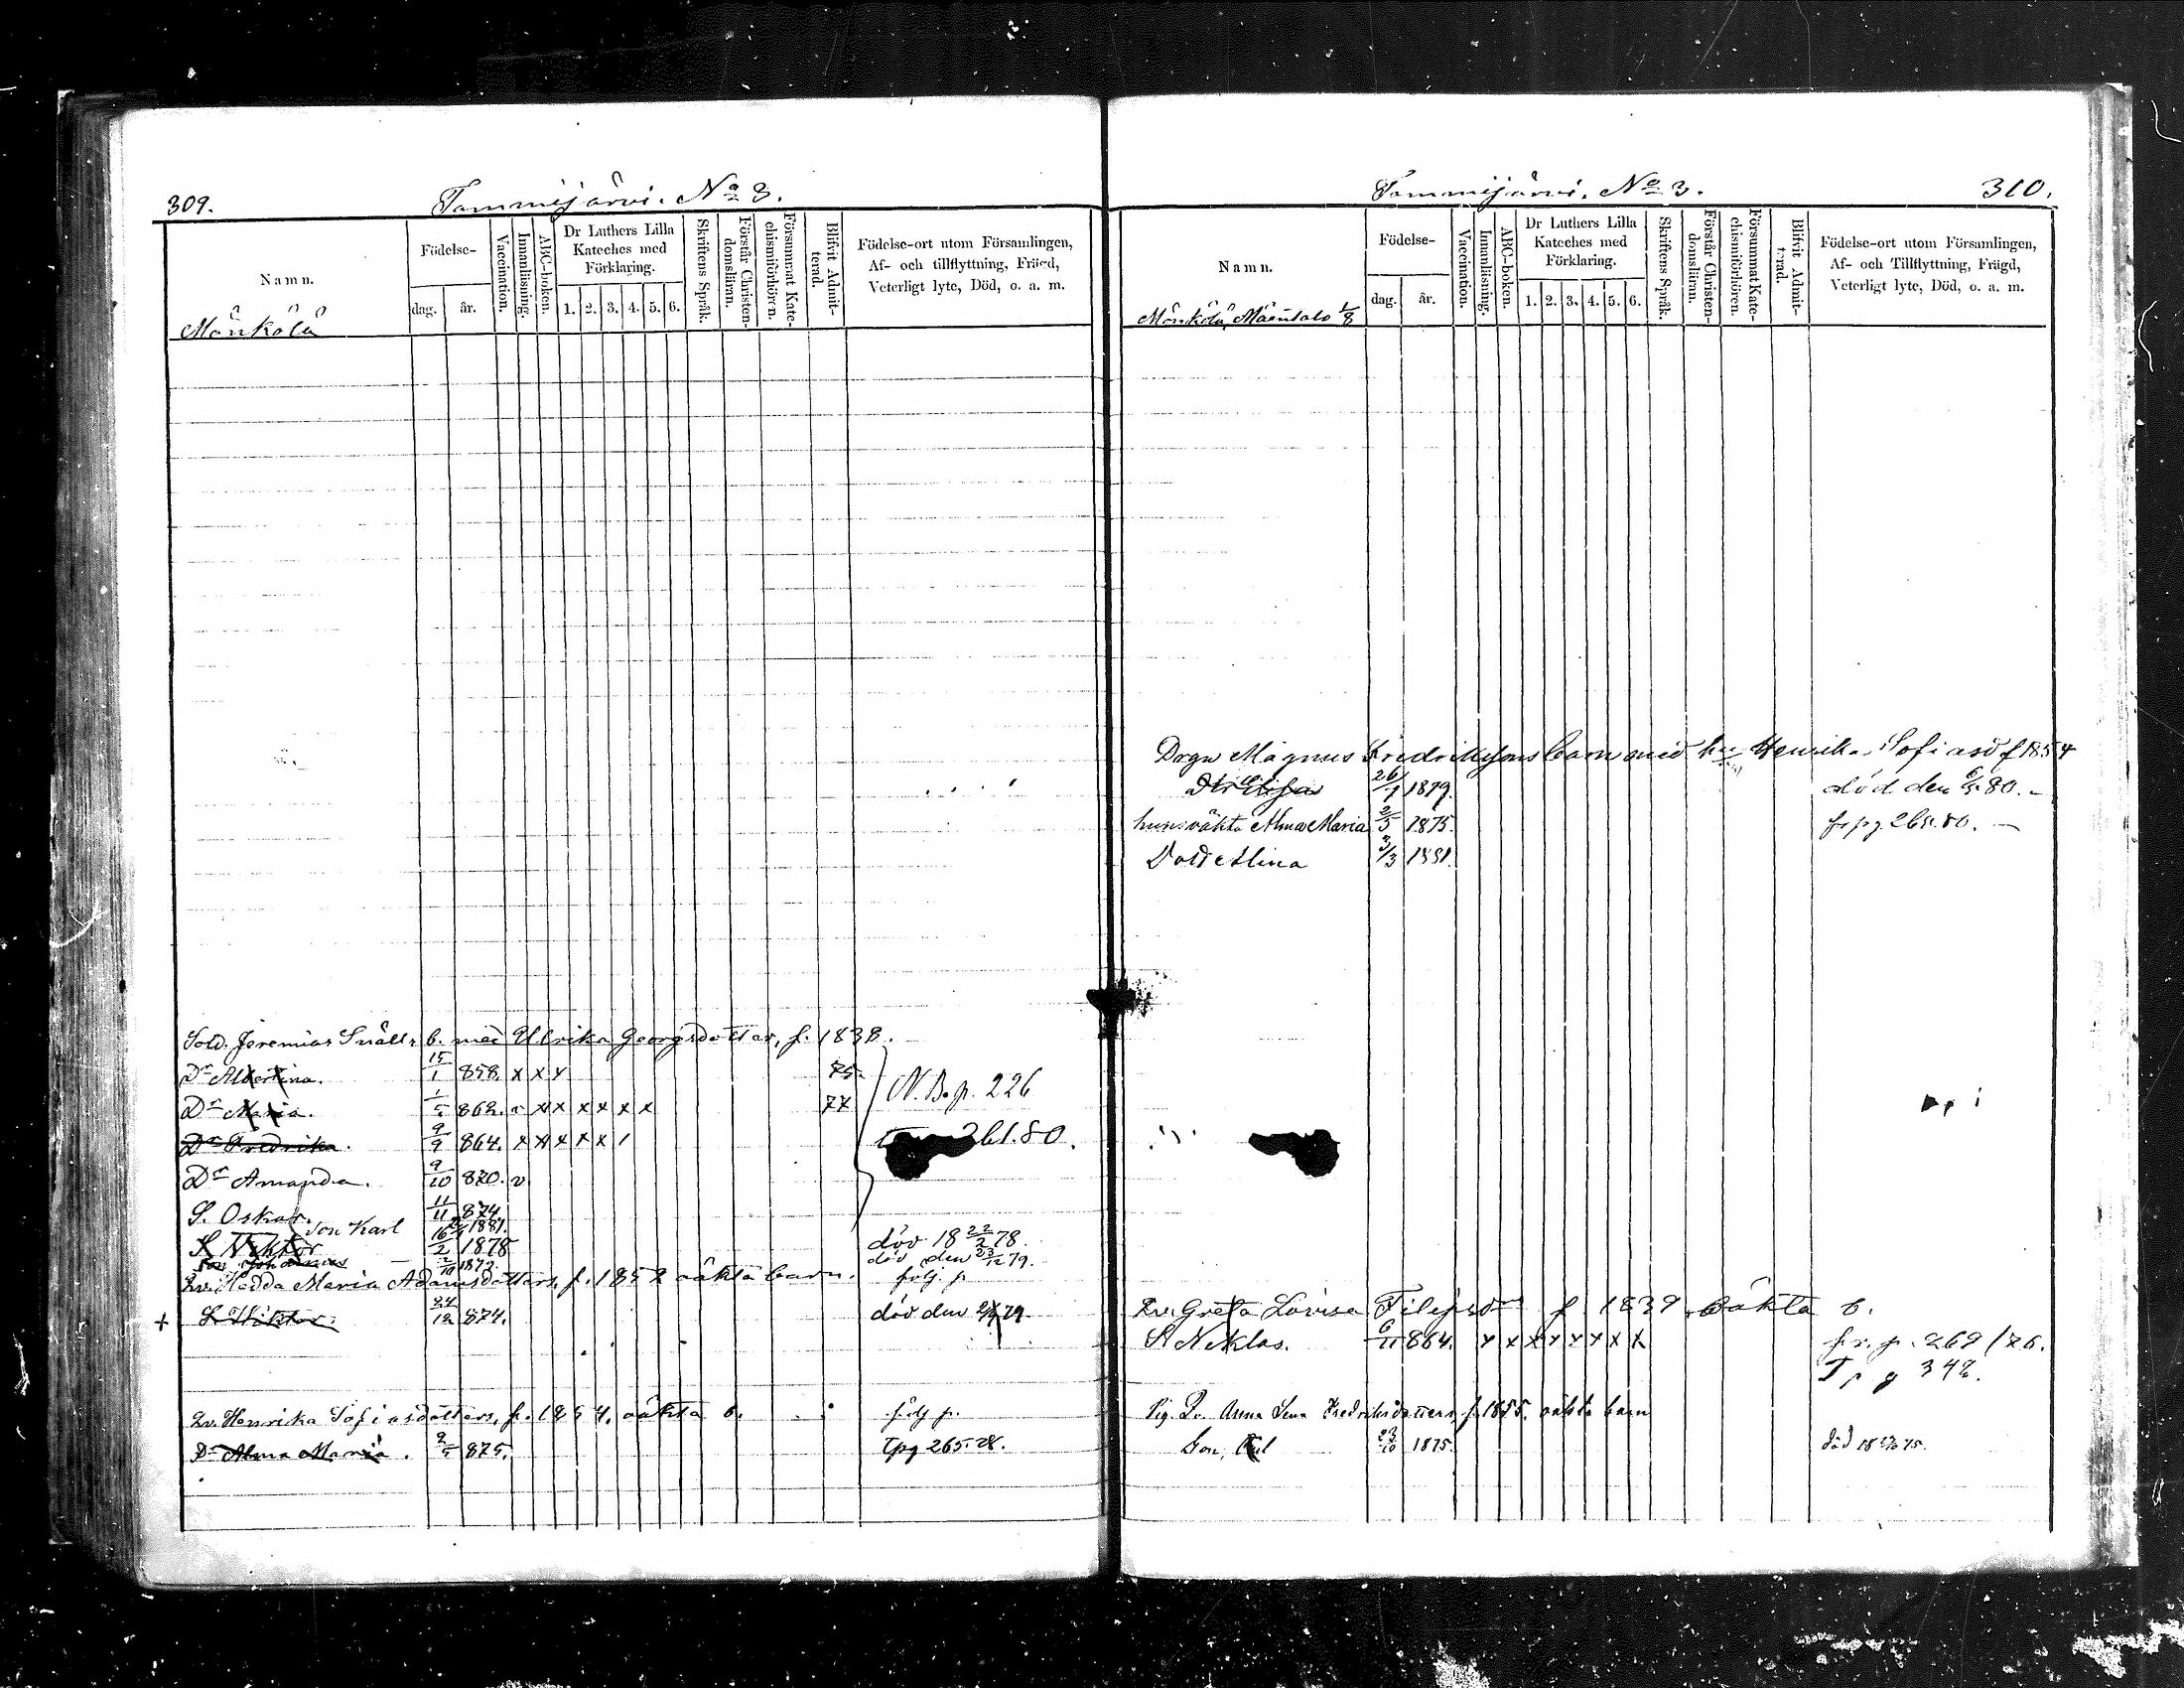 309.
Tammijärvi. No 3.
Namn.
Födelse-
dag.
år.
Vaccination.
Innanläsning.
ABC-boken.
Dr Luthers Lilla Kateches med Förklaring.
1. 2. 3. 4. 5. 6.
Skriftens Språk.
Förstår Christendomsläran.
Försummat Katechismiförhören.
Blifvit Admitterad.
Födelse-ort utom Församlingen,
Af- och tillflyttning, Frägd,
Veterligt lyte, Död, o. a. m.
Mönkölä
Sold. Jeremias Snäll, b. med Ulrika Georgsdotter, f. 1838.
Dr Albertina. 15/1 858. x x x 75.
Dr Maria. 862. x x x x x x 77
N. B. p. 226
Dr Fredrika. 9/9 864. x x x x x / 261.80.
Dr Amanda. 9/10 870. v
S. Oskar. 11/11 874.
son Karl 1881.
S Viktor 16/2 1878 död 18 22/2 78.
son Johannes 1879. död den 23/12 79.
Qv. Hedda Maria Adamsdotters, f. 1852 oäkta barn. följ. p.
+ S. Viktor. 24/12 874. död den 79
Qv. Henrika Sofiasdotters, f. 1854. oäkta b. följ p.
Dr Alma Maria. 2/5 875. tpg 265.78.
310.
Tammijärvi. No 3.
Namn.
Födelse-
dag.
år.
Vaccination.
Innanläsning.
ABC-boken.
Dr Luthers Lilla Kateches med Förklaring.
1. 2. 3. 4. 5. 6.
Skriftens Språk.
Förstår Christendomsläran.
Försummat Katechismiförhören.
Blifvit Admitterad.
Födelse-ort utom Församlingen,
Af- och Tillflyttning, Frägd,
Veterligt lyte, Död, o. a. m.
Mönkölä, Mäentalo 1/8
Drgn Magnus Fredrikssons barn med hu Henrika Sofiasd f 1854
26/7 1879. död den 80.
hus: oäkta Alma Maria 2/5 1875. fr pg. 265.80.
Dott Alina 3/3 1881.
Qv. Greta Lovisa Filipsd f 1839 oäkta b.
S Neklas. 6/11 864. x x x x x x x x fr. p. 269/76.
T p g 342.
Pig. Qv. Anna Lena Fredriksdotters f. 1855. oäkta barn
Son, 23/10 1875. död 18 75.